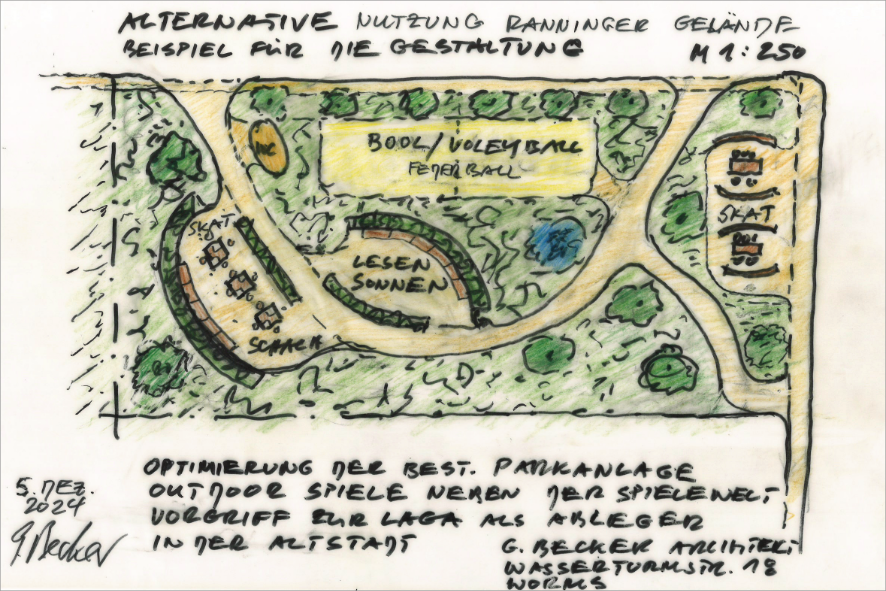 ALTERNATIVE NUTZUNG RANNINGER GELÄNDE
BEISPIEL FÜR DIE GESTALTUNG M 1:250
WC
BOOL/VOLEYBALL
FEDERBALL
SKAT
SKAT
LESEN
SONNEN
SCHACH
OPTIMIERUNG DER BEST. PARKANLAGE
OUTDOOR SPIELE NEBEN DER SPIELEWELT
VORGRIFF ZUR LAGA ALS ABLEGER
IN DER ALTSTADT
5. DEZ.
2024
G. Becker
G. BECKER ARCHITEKT
WASSERTURMSTR. 18
WORMS